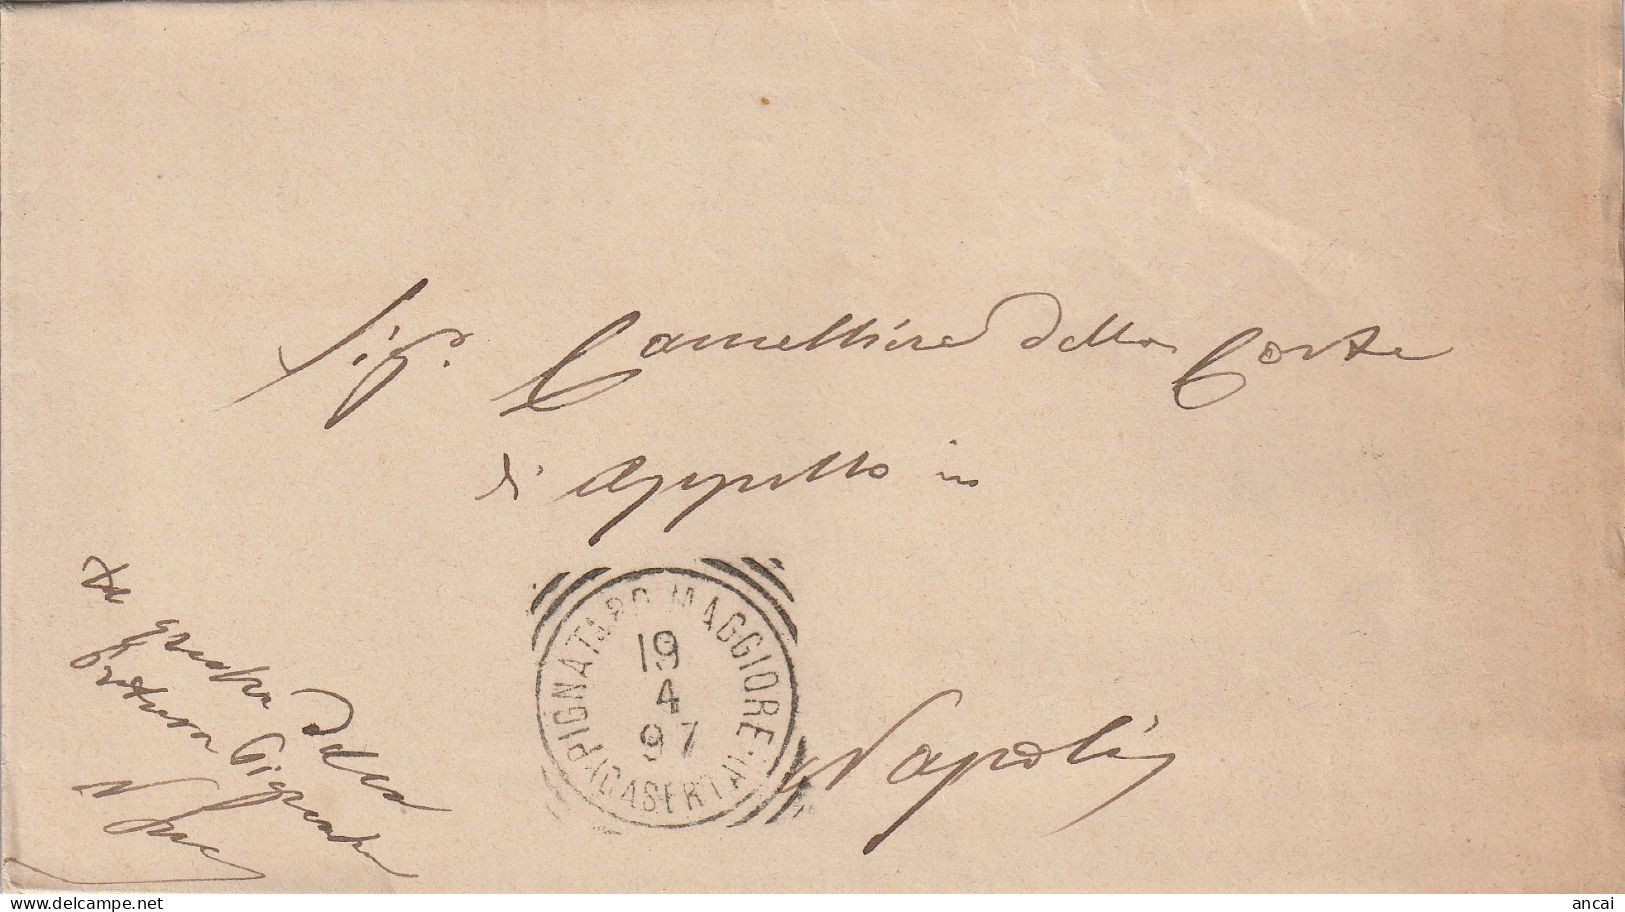 Sig.r Cancelliere della Corte
di Appello in
Napoli
PIGNATARO MAGGIORE
(CASERTA)
19
4
97
della
Pretura Pignataro
www.delcampe.net
ancai